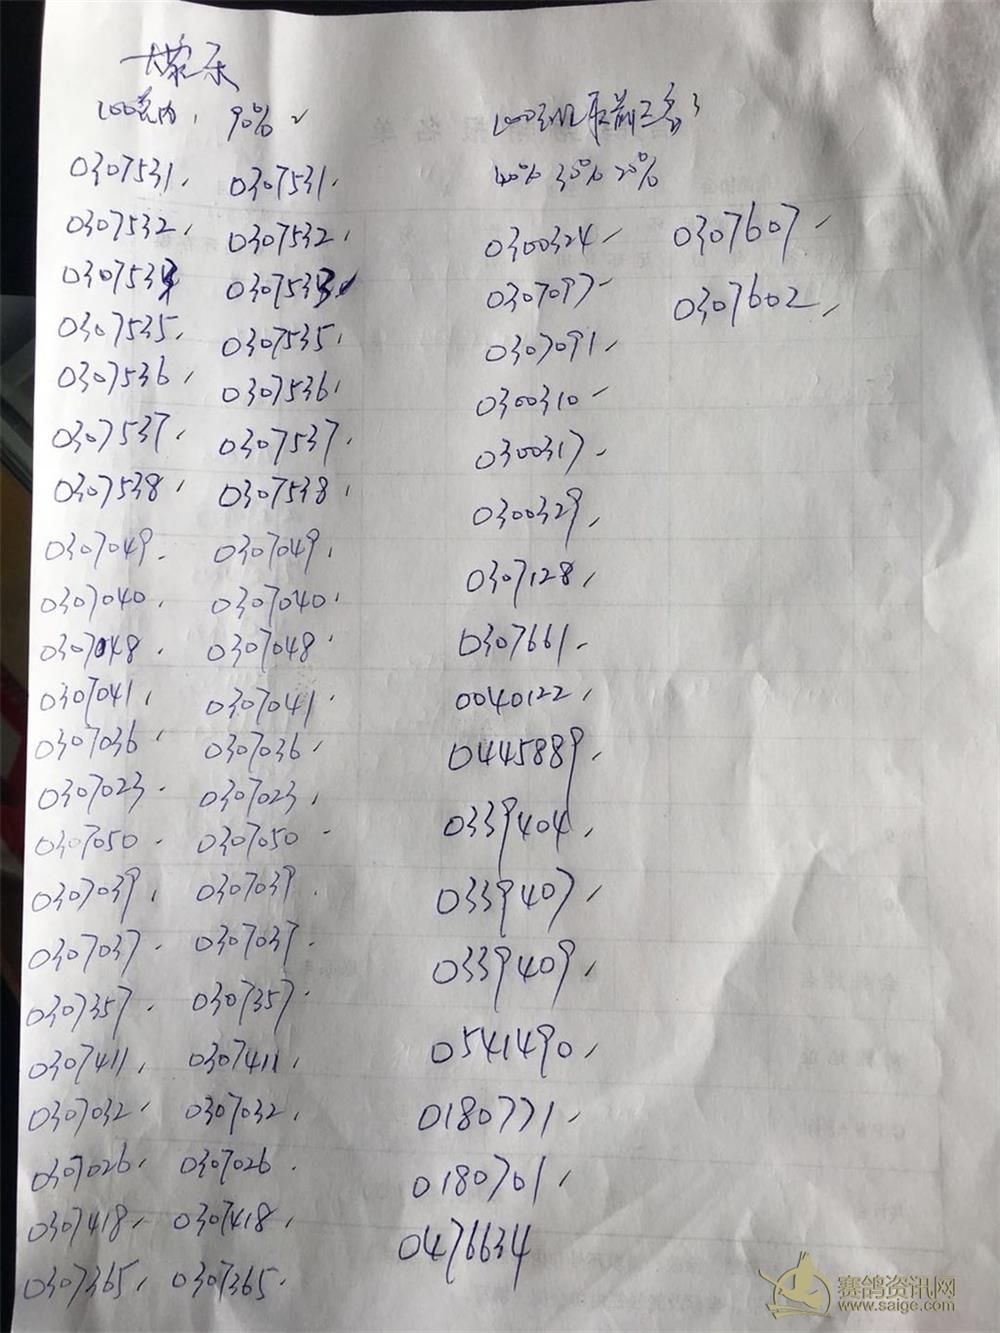 100名内, 90%
0307531, 0307531,
0307532, 0307532,
0307533 0307533
0307535, 0307535,
0307536, 0307536,
0307537, 0307537,
0307538, 0307538,
0307049, 0307049,
0307040, 0307040,
0307048, 0307048,
0307041, 0307041,
0307036, 0307036,
0307023, 0307023,
0307050, 0307050
0307039, 0307039,
0307037, 0307037,
0307357, 0307357,
0307411, 0307411,
0307032, 0307032,
0307026, 0307026,
0307418, 0307418,
0307365, 0307365,
取前三名
40% 30% 20%
0300324,
0307097
0307091,
0300310
0300317,
0300329,
0307128,
0307661,
0040122,
0445889,
0339404,
0339407,
0339409,
0541490,
0180771,
0180701,
0476634
0307607,
0307602,
赛鸽资讯网
www.saige.com